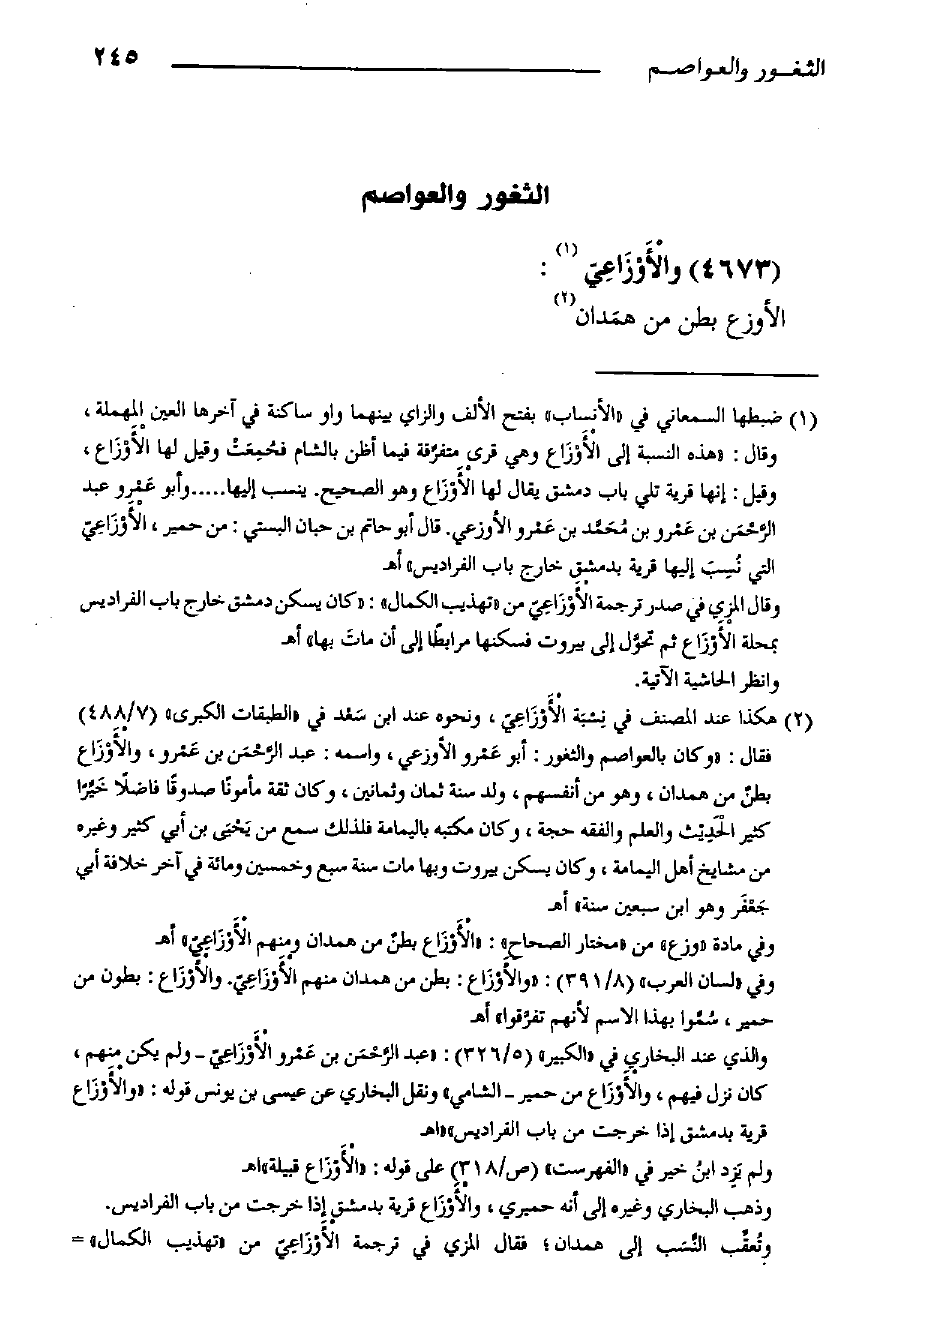 الثغـور والعـواصـم ٢٤٥
الثغور والعواصم
(٤٦٧٣) والْأَوْزَاعِيّ (١) :
الأوزع بطن من همَدان (٢)
(١) ضبطها السمعاني في «الأنساب» بفتح الألف والزاي بينهما واو ساكنة في آخرها العين المهملة ،
وقال : «هذه النسبة إلى الْأَوْزَاع وهي قرى متفرّقة فيما أظن بالشام فجُمِعَتْ وقيل لها الْأَوْزَاع ،
وقيل : إنها قرية تلي باب دمشق يقال لها الْأَوْزَاع وهو الصحيح. ينسب إليها.....وأبو عَمْرو عبد
الرَّحْمَن بن عَمْرو بن مُحَمَّد بن عَمْرو الأوزعي. قال أبو حاتم بن حبان البستي : من حمير ، الْأَوْزَاعِيّ
التي نُسِبَ إليها قرية بدمشق خارج باب الفراديس» أهـ
وقال المزي في صدر ترجمة الْأَوْزَاعِيّ من «تهذيب الكمال» : «كان يسكن دمشق خارج باب الفراديس
بمحلة الْأَوْزَاع ثم تحوَّل إلى بيروت فسكنها مرابطًا إلى أن ماتَ بها» أهـ
وانظر الحاشية الآتية.
(٢) هكذا عند المصنف في نِسْبَة الْأَوْزَاعِيّ ، ونحوه عند ابن سَعْد في «الطبقات الكبرى» (٤٨٨/٧)
فقال : «وكان بالعواصم والثغور : أبو عَمْرو الأوزعي ، واسمه : عبد الرَّحْمَن بن عَمْرو ، والْأَوْزَاع
بطنٌ من همدان ، وهو من أنفسهم ، ولد سنة ثمان وثمانين ، وكان ثقة مأمونًا صدوقًا فاضلًا خَيِّرًا
كثير الْحَدِيْث والعلم والفقه حجة ، وكان مكتبه باليمامة فلذلك سمع من يَحْيَى بن أبي كثير وغيره
من مشايخ أهل اليمامة ، وكان يسكن بيروت وبها مات سنة سبع وخمسين ومائة في آخر خلافة أبي
جَعْفَر وهو ابن سبعين سنة» أهـ
وفي مادة «وزع» من «مختار الصحاح» : «الْأَوْزَاع بطنٌ من همدان ومنهم الْأَوْزَاعِيّ» أهـ
وفي «لسان العرب» (٣٩١/٨) : «والْأَوْزَاع : بطن من همدان منهم الْأَوْزَاعِيّ. والْأَوْزَاع : بطون من
حمير ، سُمُّوا بهذا الاسم لأنهم تفرّقوا» أهـ
والذي عند البخاري في «الكبير» (٣٢٦/٥) : «عبد الرَّحْمَن بن عَمْرو الْأَوْزَاعِيّ – ولم يكن منهم ،
كان نزل فيهم ، والْأَوْزَاع من حمير – الشامي» ونقل البخاري عن عيسى بن يونس قوله : «والْأَوْزَاع
قرية بدمشق إذا خرجت من باب الفراديس»«اهـ
ولم يَزِد ابنُ خير في «الفهرست» (ص/٣١٨) على قوله : «الْأَوْزَاع قبيلة»اهـ
وذهب البخاري وغيره إلى أنه حميري ، والْأَوْزَاع قرية بدمشق إذا خرجت من باب الفراديس.
وتُعقَّب النَّسَب إلى همدان ؛ فقال المزي في ترجمة الْأَوْزَاعِيّ من «تهذيب الكمال» =